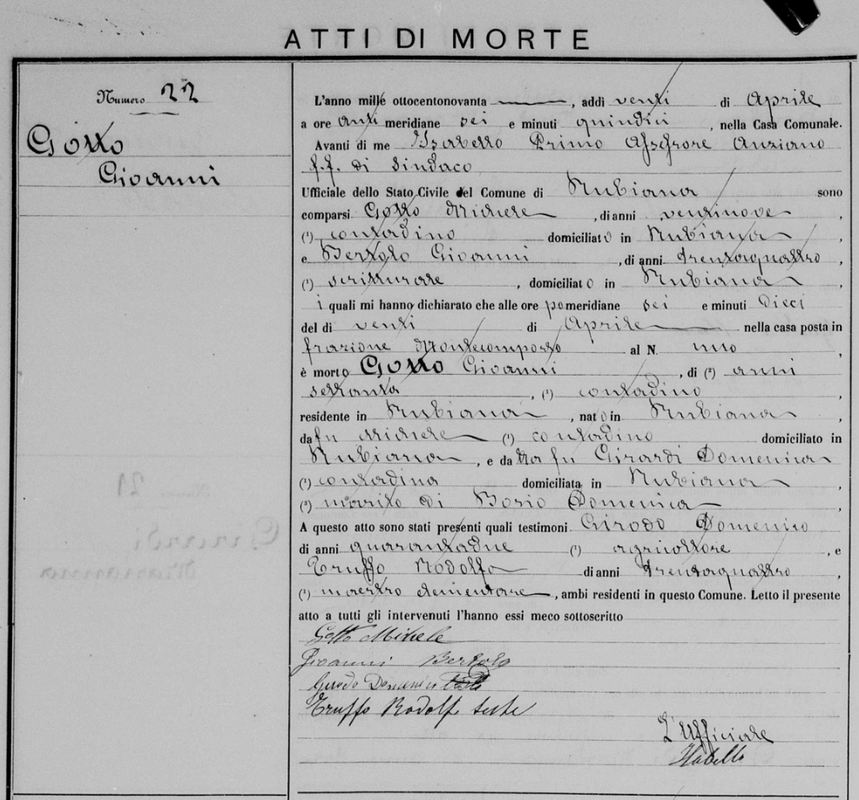 ATTI DI MORTE
Numero 22
Gotto
Giovanni
L'anno mille ottocentonovanta, addì venti di Aprile
a ore anti meridiane sei e minuti quindici, nella Casa Comunale.
Avanti di me Isabello Primo Assessore Anziano
f.f. di Sindaco
Ufficiale dello Stato Civile del Comune di Rubiana sono
comparsi Gotto Michele, di anni ventinove,
(¹) contadino domiciliato in Rubiana,
e Bertolo Giovanni, di anni trentaquattro,
(¹) scritturale, domiciliato in Rubiana,
i quali mi hanno dichiarato che alle ore pomeridiane sei e minuti dieci
del dì venti di Aprile nella casa posta in
frazione Montecomposto al N. uno
è morto Gotto Giovanni, di (²) anni
settanta, (¹) contadino,
residente in Rubiana, nato in Rubiana,
da fu Michele (¹) contadino domiciliato in
Rubiana, e da fu Girardi Domenica
(¹) contadina domiciliata in Rubiana,
(³) marito di Borio Domenica
A questo atto sono stati presenti quali testimoni Girodo Domenico
di anni quarantadue (¹) agricoltore, e
Truffo Rodolfo di anni trentaquattro,
(¹) maestro elementare, ambi residenti in questo Comune. Letto il presente
atto a tutti gli intervenuti l'hanno essi meco sottoscritto
Gotto Michele
Giovanni Bertolo
Girodo Domenico
Truffo Rodolf teste
L'Ufficiale
Isabello
Numero 21
Girardi
Marianna